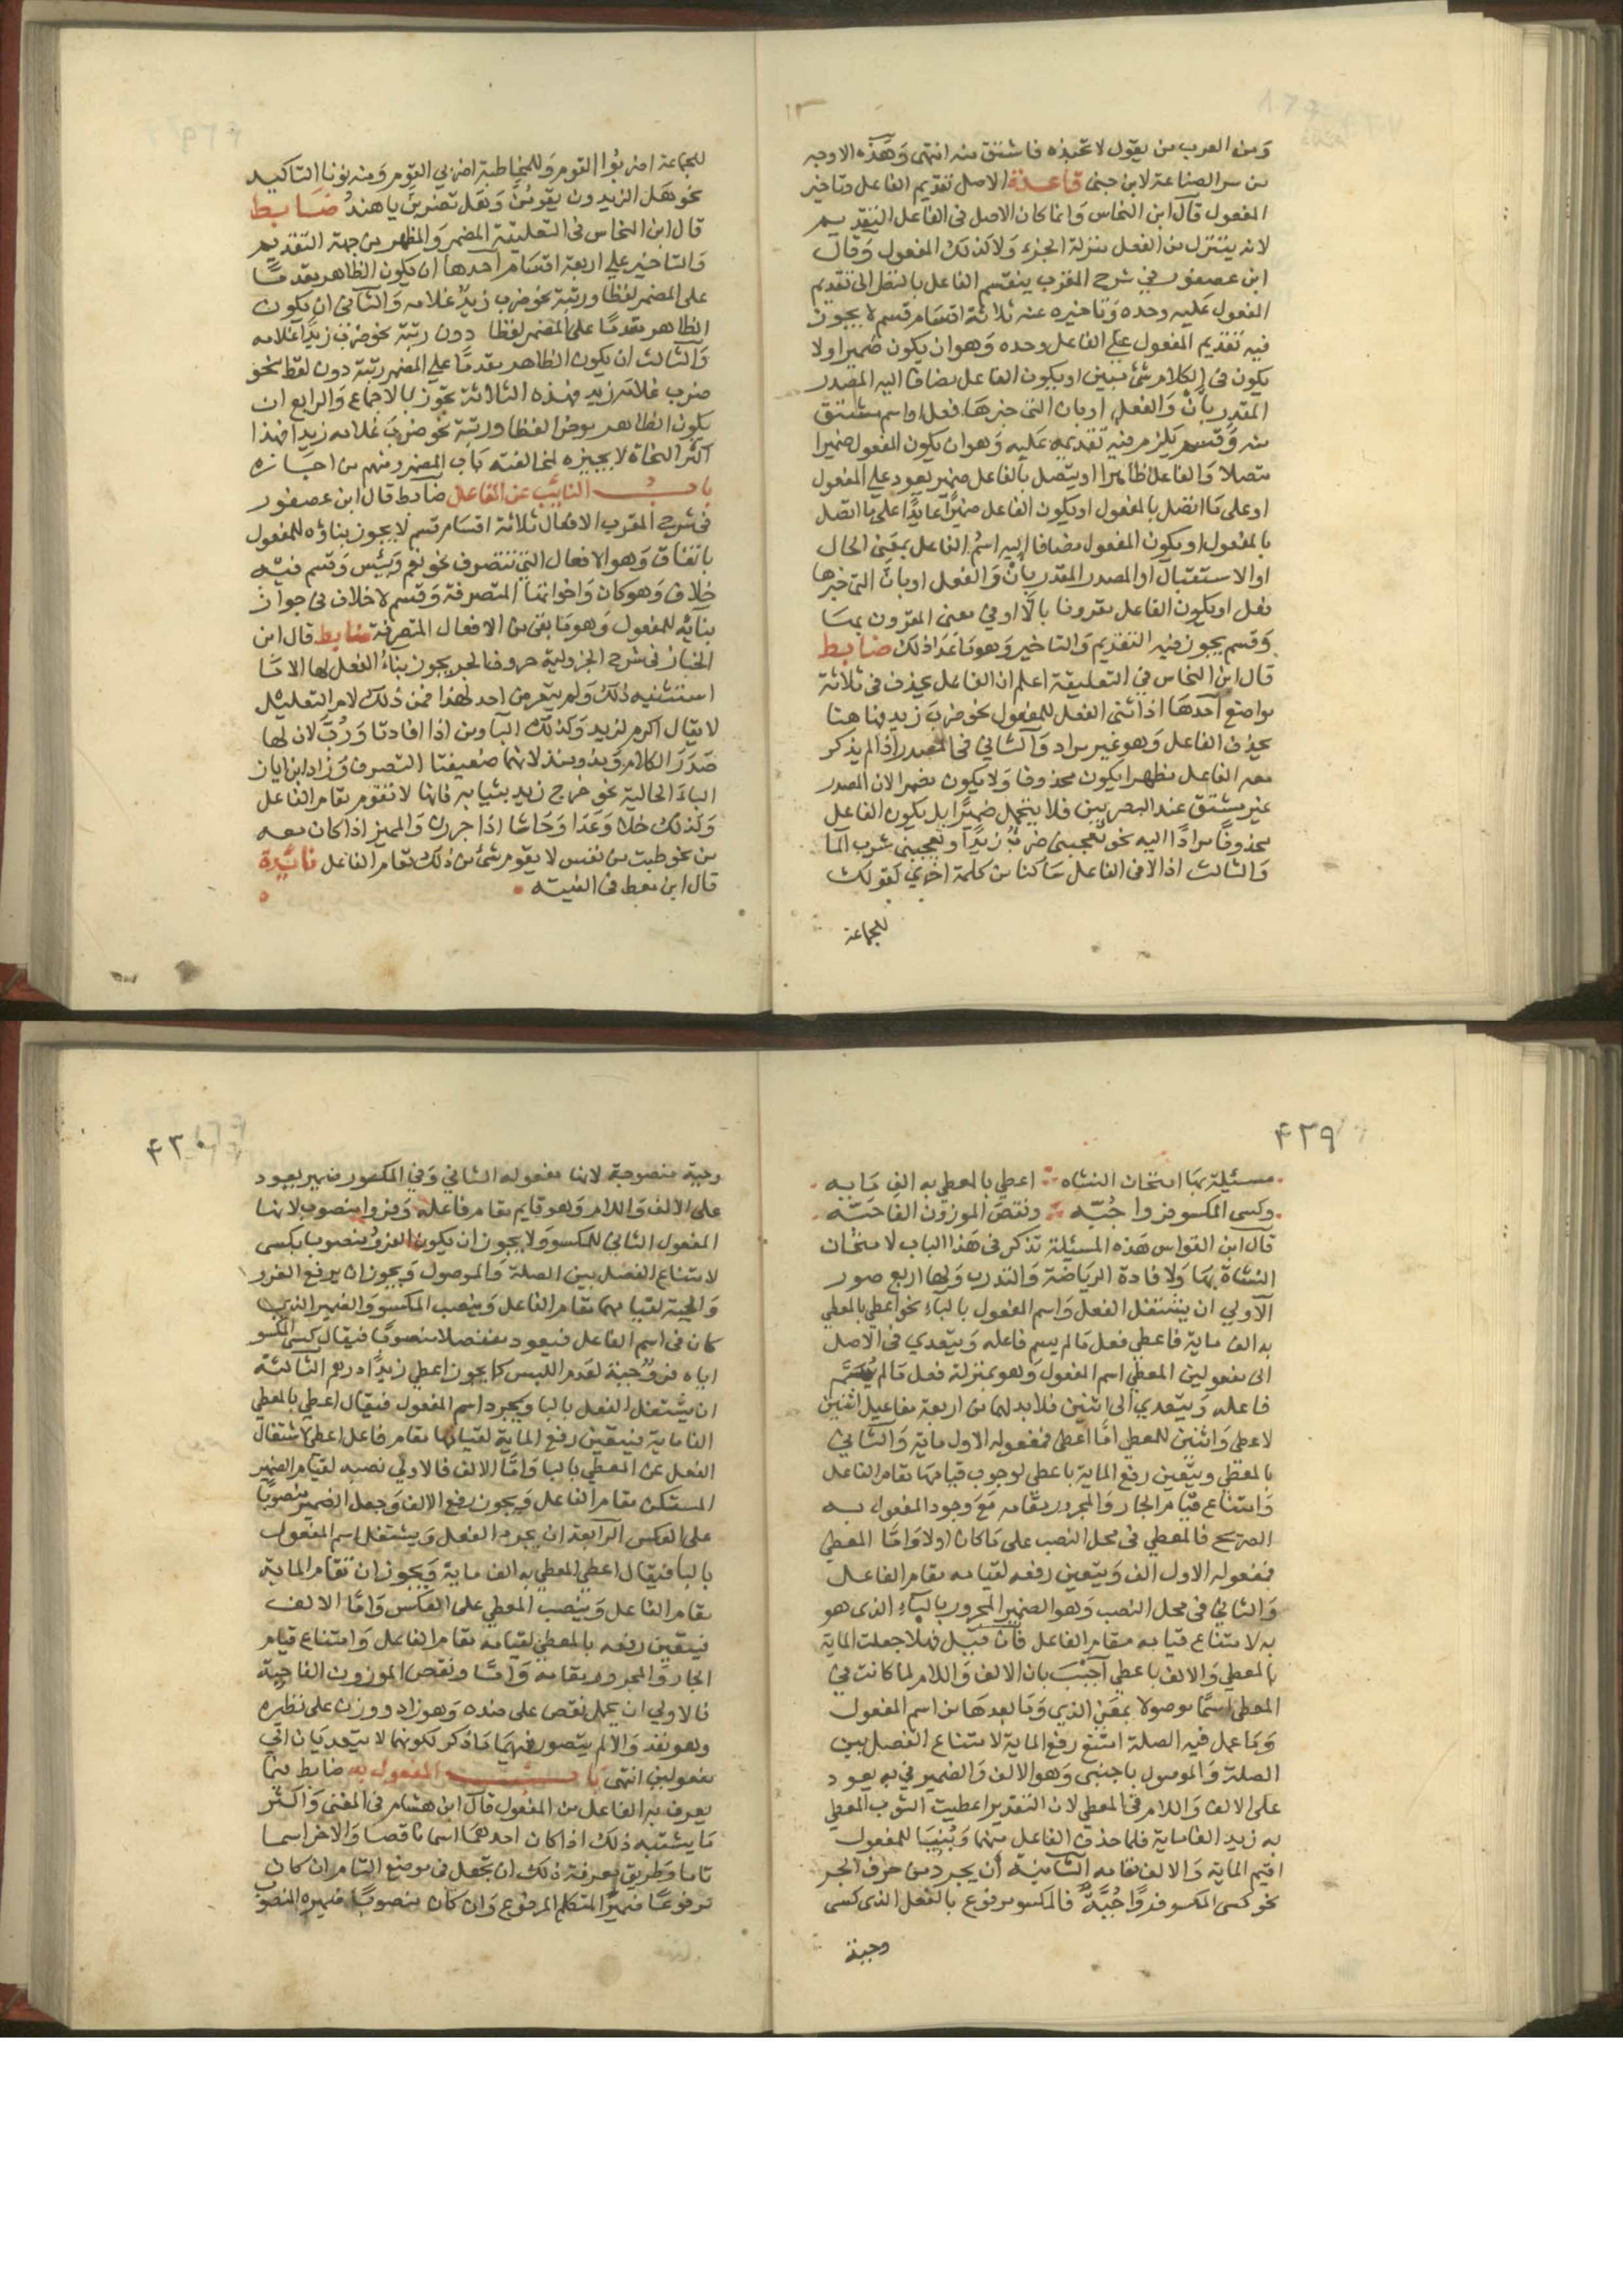 ومن العرب من يقول لا تحبذه فاشتق منه انتهى وهذه الاوجه
من سر الصناعة لابن جنى قاعدة الاصل تقديم الفاعل وتاخير
المفعول قال ابن النحاس وانما كان الاصل فى الفاعل التقديم
لانه يتنزل من الفعل منزلة الجزء ولا كذلك المفعول وقال
ابن عصفور في شرح المقرب ينقسم الفاعل بالنظر الى تقديم
المفعول عليه وحده وتاخيره عنه ثلاثة اقسام قسم لا يجوز
فيه تقديم المفعول على الفاعل وحده وهو ان يكون ضميرا ولا
يكون فى الكلام شئ مبين او يكون الفاعل مضافا اليه المصدر
المقدر بأن والفعل او بان التى خبرها فعل او اسم مشتق
منه وقسم يلزم فيه تقديمه عليه وهو ان يكون المفعول ضميرا
متصلا والفاعل ظاهرا او يتصل بالفاعل ضمير يعود على المفعول
او على ما اتصل بالمفعول او يكون الفاعل ضميرا عايدا على ما اتصل
بالمفعول او يكون المفعول مضافا اليه اسم الفاعل بمعنى الحال
او الاستقبال او المصدر المقدر بان والفعل او بان التى خبرها
فعل او يكون الفاعل مقرونا بالا او في معنى المقرون بها
وقسم يجوز فيه التقديم والتاخير وهو ما عدا ذلك ضابط
قال ابن النحاس في التعليقة اعلم ان الفاعل يحذف فى ثلاثة
مواضع احدها اذا بنى الفعل للمفعول نحو ضرب زيد فها هنا
يحذف الفاعل وهو غير مراد والثاني فى المصدر اذا لم يذكر
معه الفاعل مظهرا يكون محذوفا ولا يكون مضمرا لان المصدر
غير مشتق عند البصريين فلا يتحمل ضميرا بل يكون الفاعل
محذوفا مرادا اليه نحو يعجبنى ضرب زيدا ويعجبنى شرب الما
والثالث اذا لاقى الفاعل ساكنا من كلمة اخرى كقولك
للجماعة
للجماعة اضربوا القوم وللمخاطبة اضربى القوم ومنه نونا التاكيد
نحو هل الزيدون يقومن وهل تضربن يا هند ضابط
قال ابن النحاس فى التعليقة المضمر والمظهر من جهة التقديم
والتاخير على اربعة اقسام احدها ان يكون الظاهر مقدما
على المضمر لفظا ورتبة نحو ضرب زيد غلامه والثانى ان يكون
الظاهر مقدما على المضمر لفظا دون رتبة نحو ضرب زيدا غلامه
والثالث ان يكون الظاهر مقدما على المضمر رتبة دون لفظ نحو
ضرب غلامه زيد فهذه الثلاثة تجوز بالاجماع والرابع ان
يكون الظاهر موخرا لفظا ورتبة نحو ضرب غلامه زيدا فهذا
اكثر النحاة لا يجيزه لمخالفته باب المضمر ومنهم من اجازه
باب النائب عن الفاعل ضابط قال ابن عصفور
فى شرح المقرب الافعال ثلاثة اقسام قسم لا يجوز بناؤه للمفعول
باتفاق وهو الافعال التى تتصرف نحو نعم وبئس وقسم فيه
خلاف وهو كان واخواتها المتصرفة وقسم لا خلاف فى جواز
بنائه للمفعول وهو ما بقى من الافعال المتصرفة ضابط قال ابن
الخباز فى شرح الجزولية حروف الجر يجوز بناء الفعل لها الا ما
استثنيه ذلك ولم يتعرض احد لهذا فمن ذلك لام التعليل
لا يقال اكرم لزيد وكذلك الباء ومن اذا افادتا ورب لان لها
صدر الكلام ومذ ومنذ لانهما ضعيفتا التصرف وزاد ابن اياز
الباء الحالية نحو خرج زيد بثيابه فانها لا تقوم مقام الفاعل
وكذلك خلا وعدا وحاشا اذا جررن والمميز اذا كان معه
من نحو طبت من نفس لا يقوم شئ من ذلك مقام الفاعل فائدة
قال ابن معط فى الفيته
٤٢٩
مسئلة بها امتحان النشاه اعطي بالمعطي به الف مايه
وكسى المكسو فروا جبه ونقص الموزون الفا حبه
قال ابن القواس هذه المسئلة تذكر فى هذا الباب لامتحان
النشاة بها ولافادة الرياضة والتدرب ولها اربع صور
الاولي ان يشتغل الفعل واسم المفعول بالباء نحو اعطي بالمعطي
به الف ماية فاعطي فعل ما لم يسم فاعله ويتعدي فى الاصل
الى مفعولين المعطي اسم المفعول وهو بمنزلة فعل ما لم يسم
فاعله ويتعدي الى اثنين فلا بد لهما من اربعة مفاعيل اثنين
لاعطي واثنين للمعطي اما اعطي فمفعوله الاول ماية والثاني
بالمعطي ويتعين رفع الماية باعطي لوجوب قيامها مقام الفاعل
وامتناع قيام الجار والمجرور مقامه مع وجود المفعول به
الصريح فالمعطي فى محل النصب على ما كان اولا واما المعطي
فمفعوله الاول الف ويتعين رفعه لقيامه مقام الفاعل
والثاني فى محل النصب وهو الضمير المجرور بالباء الذى هو
به لامتناع قيامه مقام الفاعل فان قيل فهلا جعلت الماية
بالمعطي والالف باعطي اجيب بان الالف واللام لما كانت في
المعطي اسما موصولا بمعنى الذي وما بعدها من اسم المفعول
وما عمل فيه الصلة امتنع رفع الماية لامتناع الفصل بين
الصلة والموصول باجنبي وهو الالف والضمير في به يعود
على الالف واللام فى المعطي لان التقدير اعطيت الثوب المعطي
به زيد الفا ماية فلما حذف الفاعل منهما وبنيا للمفعول
اقيم الماية والالف مقامه الثانية ان يجرد من حرف الجر
نحو كسى المكسو فروا جبة فالمكسو مرفوع بالفعل الذى كسى
وجبة
٤٣٠
وجبة منصوبة لانها مفعوله الثاني وفي المكسو ضمير يعود
على الالف واللام وهو قايم مقام فاعله وفروا منصوب لانها
المفعول الثاني للمكسو ولا يجوز ان يكون الفرو منصوبا بكسى
لامتناع الفصل بين الصلة والموصول ويجوز ان يرفع الفرو
والجبة لقيامهما مقام الفاعل وينصب المكسو والضمير الذي
كان فى اسم الفاعل فيعود منفصلا منصوبا فيقال كسى المكسو
اياه فرو جبة لعدم اللبس كما يجوز اعطي زيدا درهم الثالثة
ان يشتغل الفعل بالبا ويجرد اسم المفعول فيقال اعطي بالمعطي
الفا ماية فيتعين رفع الماية لقيامها مقام فاعل اعطى لاشتغال
الفعل عن المعطي بالبا واما الالف فالاولى نصبه لقيام الضمير
المستكن مقام الفاعل ويجوز رفع الالف وجعل الضمير منصوبا
على العكس الرابعة ان يجرد الفعل ويشتغل اسم المفعول
بالبا فيقال اعطي المعطي به الف ماية ويجوز ان تقام الماية
مقام الفاعل وينصب المعطي على العكس واما الالف
فيتعين رفعه بالمعطي لقيامه مقام الفاعل وامتناع قيام
الجار والمجرور مقامه واما ونقص الموزون الفا حبة
فالاولي ان يحمل نقص على ضده وهو زاد ووزن على نظيره
وهو نقد والا لم يتصور فيهما ما ذكر لكونهما لا يتعديان الى
مفعولين انتهى باب المفعول به ضابط فيما
يعرف به الفاعل من المفعول قال ابن هشام فى المغنى واكثر
ما يشتبه ذلك اذا كان احدهما اسما ناقصا والاخر اسما
تاما وطريق معرفة ذلك ان تجعل فى موضع التام ان كان
مرفوعا ضمير المتكلم المرفوع وان كان منصوبا ضميره المنصوب